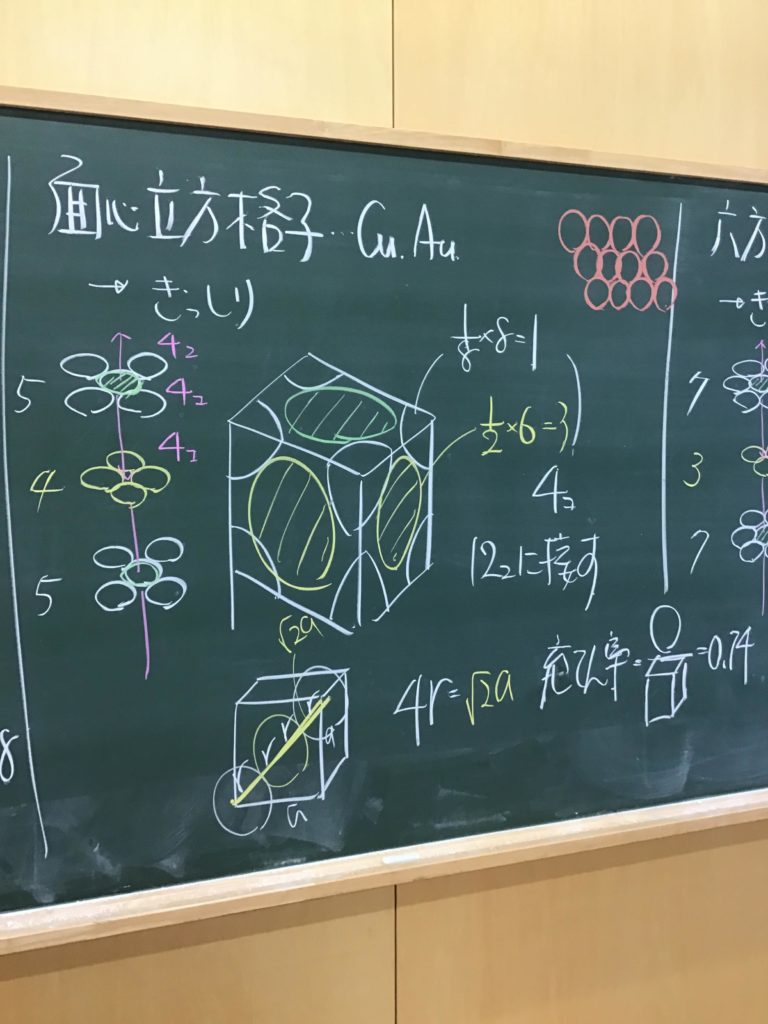 面心立方格子…Cu.Au.
→ きっしり
5
4コ
4コ
4コ
4
5
1/8×8=1
1/2×6=3
4コ
12コに接す
√2a
r
r
r
r
a
a
4r=√2a
充てん率= =0.74
六方
→き
7
3
7
8